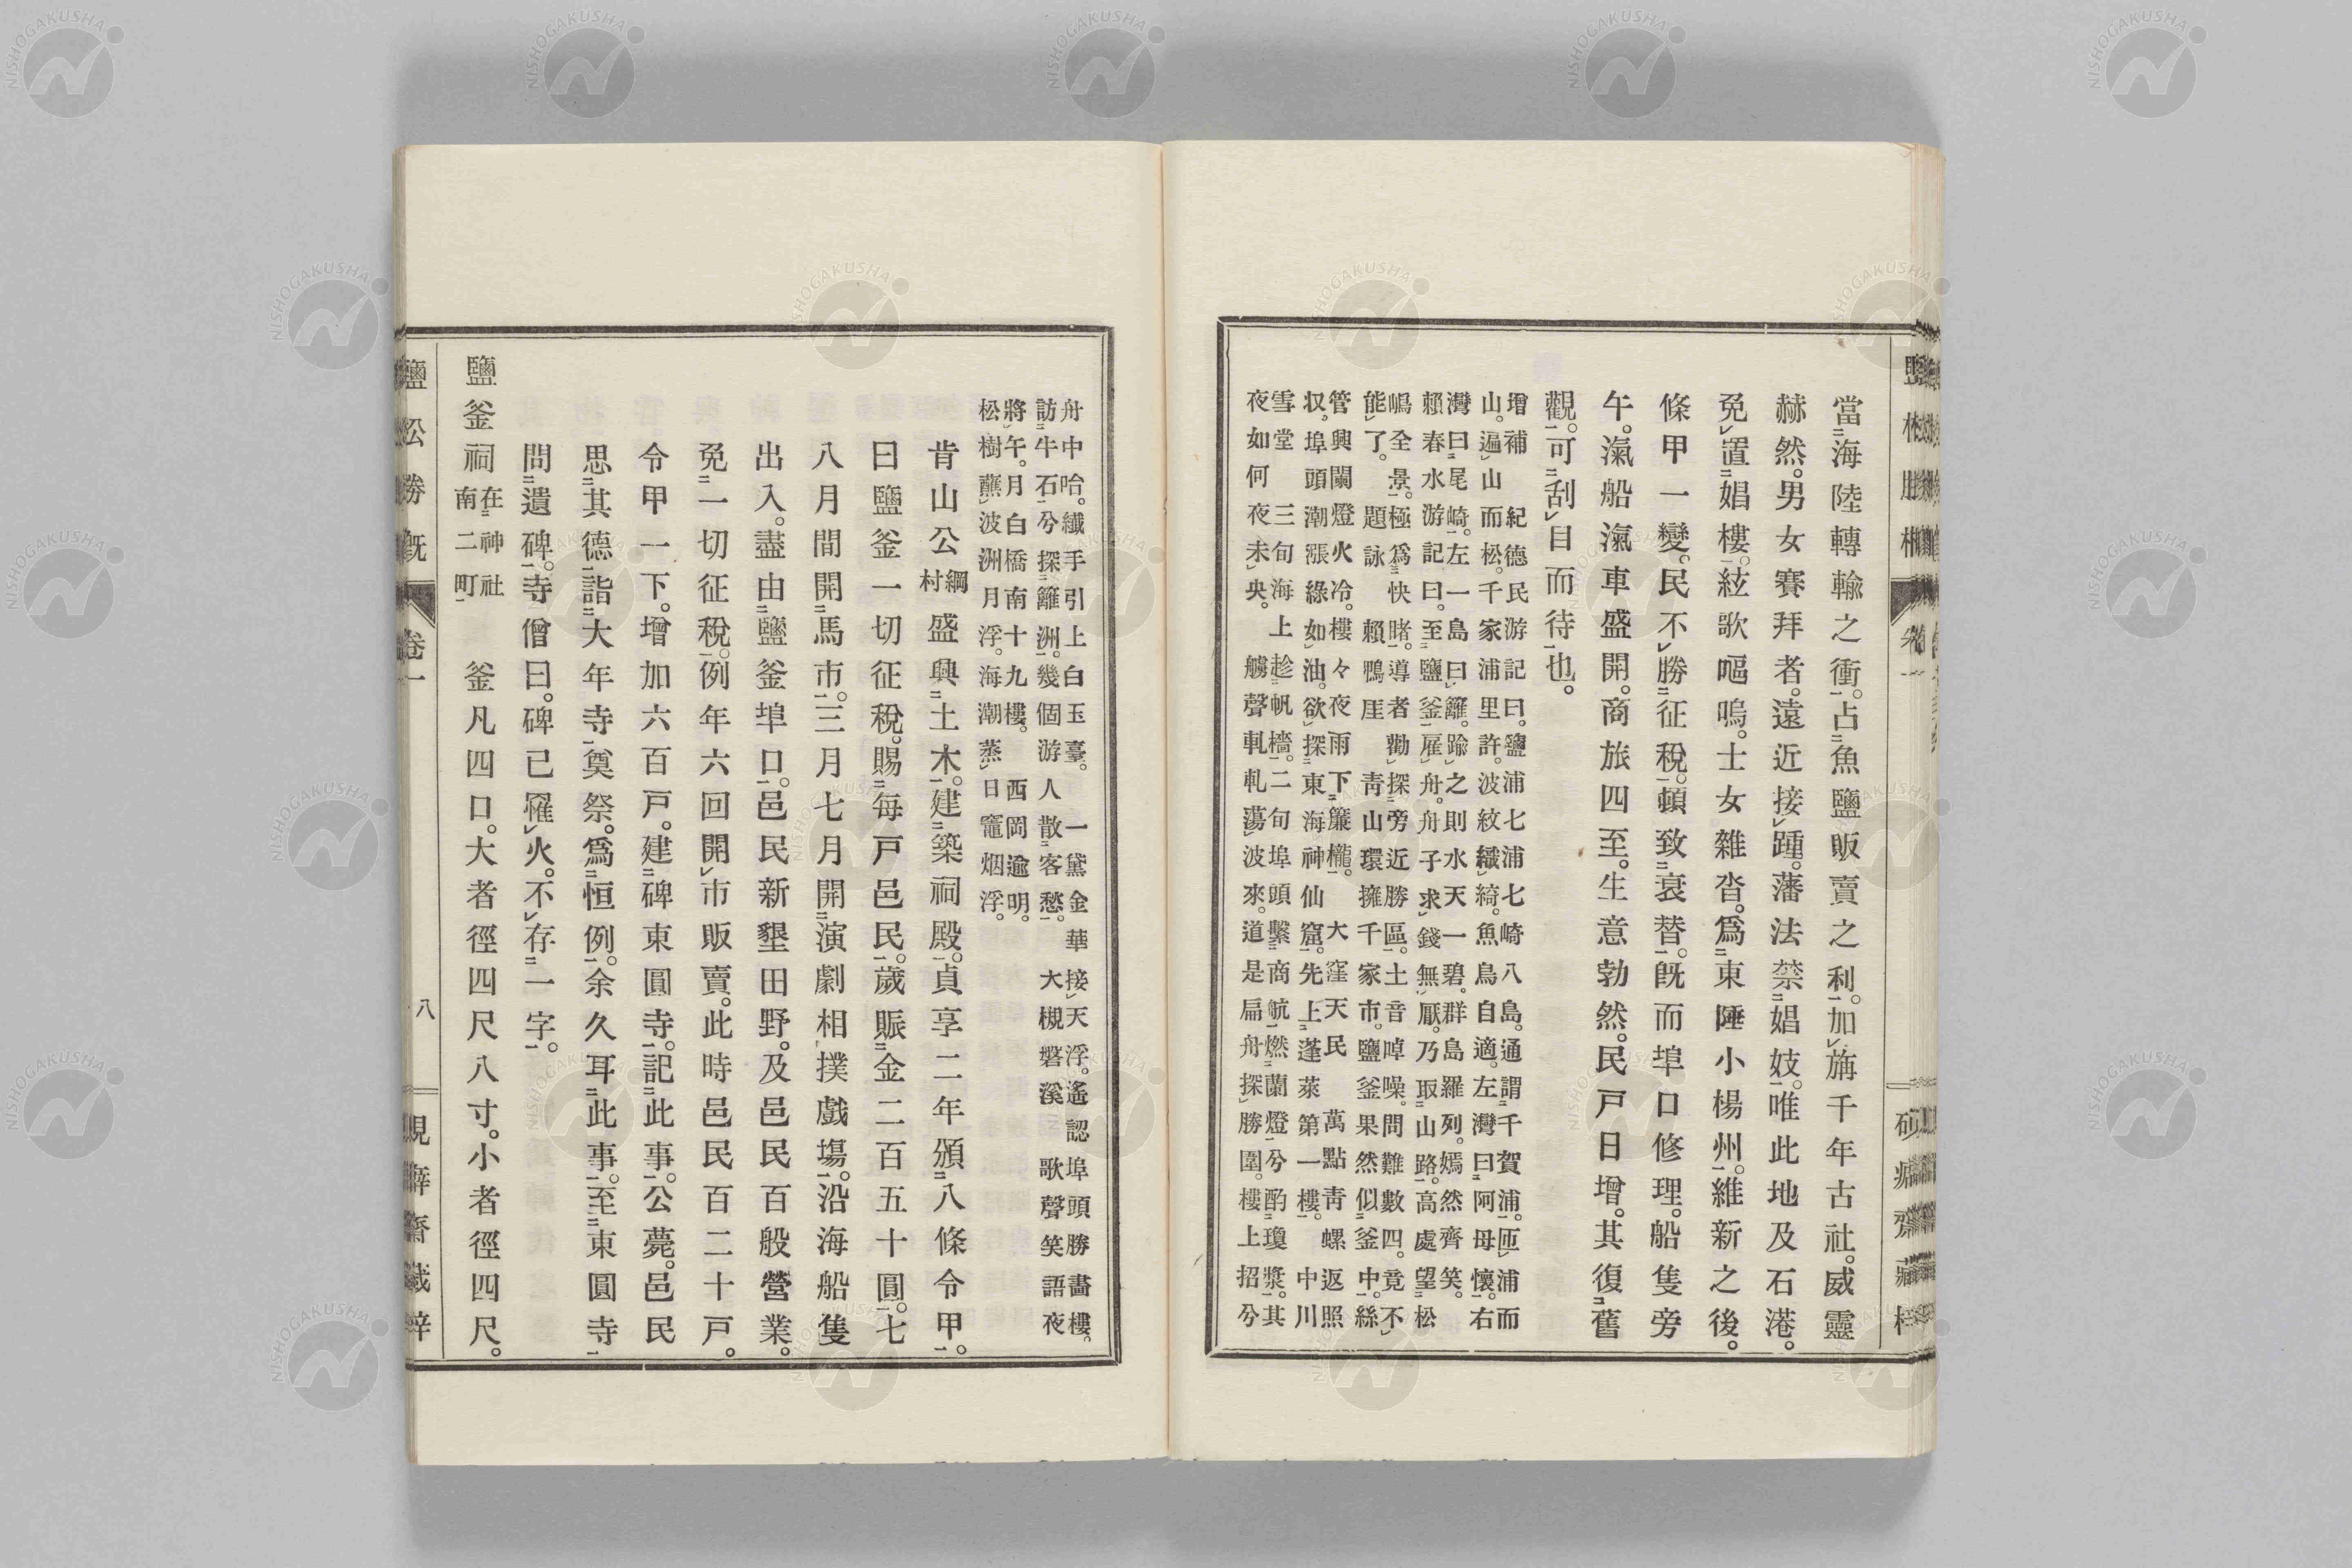 當海陸轉輸之衝。占魚鹽販賣之利。加旃千年古社。威靈
赫然。男女賽拜者。遠近接踵。藩法禁娼妓。唯此地及石港。
免置娼樓。絃歌嘔嗚。士女雜沓。爲東陲小楊州。維新之後。
條甲一變。民不勝征稅。頓致衰替。既而埠口修理。船隻旁
午。滊船滊車盛開。商旅四至。生意勃然。民戶日增。其復舊
觀。可刮目而待也。
增補 紀德民游記曰。鹽浦七浦七崎八島。通謂千賀浦。匝浦而
山。遍山而松。千家浦里許。波紋織綺。魚鳥自適。左灣曰阿母懷。右
灣曰尾崎。左一島曰籬。踰之則水天一碧。群島羅列。嫣然齊笑。
賴春水游記曰。至鹽釜雇舟。舟子求錢無厭。乃取山路。高處望松
嶋全景。極爲快睹。導者勸探旁近勝區。土音啅噪。問難數四。竟不
能了。題詠 賴鴨厓 靑山環擁千家市。鹽釜果然似釜中。絲
管興闌燈火冷。樓々夜雨下簾櫳。 大窪天民 萬點靑螺返照
収。埠頭潮漲綠如油。欲探東海神仙窟。先上蓬萊第一樓。 中川
雪堂 三句海上趁帆檣。二句埠頭繫商航。燃蘭燈兮酌瓊漿。其
夜如何夜未央。 艣聲軋軋蕩波來。道是扁舟探勝圍。樓上招兮
舟中哈。纖手引上白玉臺。 一黛金華接天浮。遙認埠頭勝畫樓。
訪牛石兮探籬洲。幾個游人散客愁。 大槻磐溪 歌聲笑語夜
將午。月白橋南十九樓。 西岡逾明。
松樹蘸波洲月浮。海潮蒸日竈烟浮。
肯山公綱村盛興土木。建築祠殿。貞享二年頒八條令甲。
曰鹽釜一切征稅。賜每戶邑民。歲賑金二百五十圓。七
八月間開馬市。三月七月開演劇相撲戲場。沿海船隻
出入。盡由鹽釜埠口。邑民新墾田野。及邑民百般營業。
免一切征稅。例年六回開市販賣。此時邑民百二十戶。
令甲一下。增加六百戶。建碑東圓寺。記此事。公薨。邑民
思其德。詣大年寺奠祭。爲恒例。余久耳此事。至東圓寺
問遺碑。寺僧曰。碑已罹火。不存一字。
鹽釜祠在神社南二町 釜凡四口。大者徑四尺八寸。小者徑四尺。
鹽松勝概 卷一 八